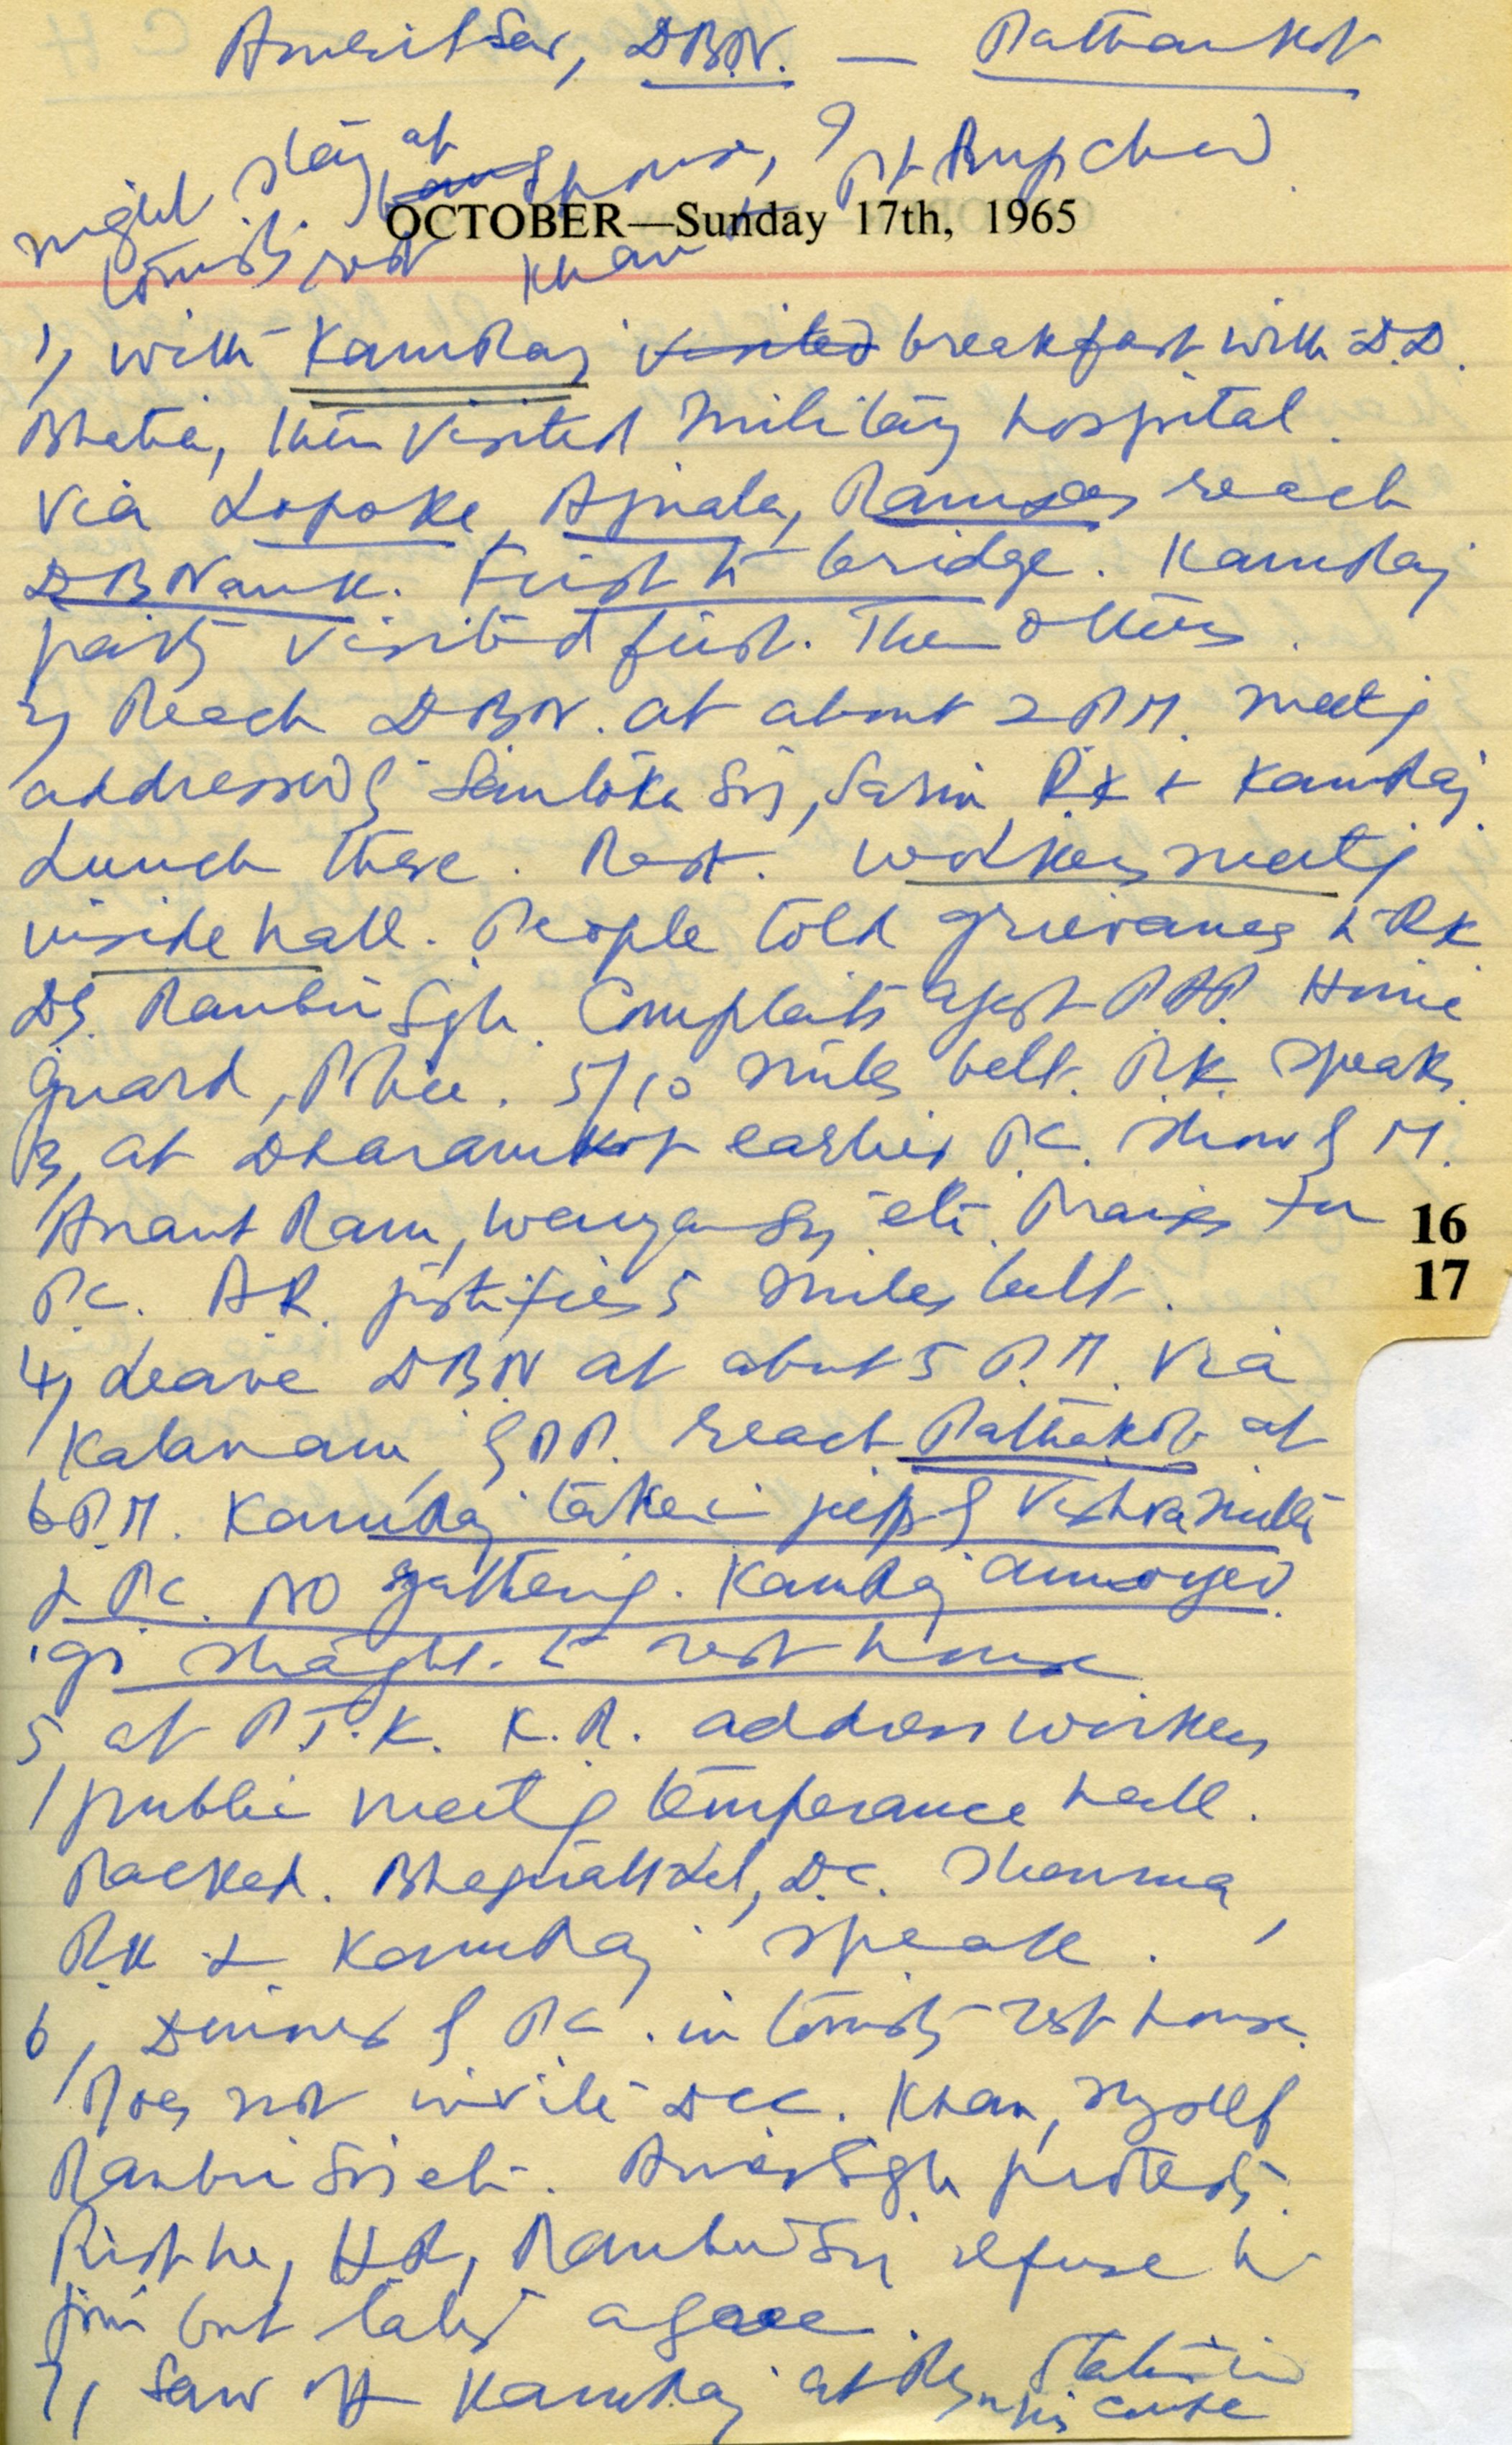 Amritsar, DBN. — Pathankot
night stay at house, ? Pt Rupchand
OCTOBER—Sunday 17th, 1965
Tourist rest Khan
1, with KamRaj visited breakfast with D.D.
Bhatia, then visited Military hospital.
Via Lopoke, Ajnala, Ramdas reach
DBNanak. First to bridge. KamRaj
party visited first. Then others.
2, Reach DBN. at about 2 PM. meetg
addressed Sin, Sarin, RK & KamRaj
Lunch there. Rest. Workers meetg
inside hall. People told grievances to RK
DS. Ranbir Sgh. Complaits agst PAP. Home
Guard, Police. 5/10 miles belt. R.K. speaks.
3, at Dharamkot earlier P.C. show of M.
Anant Ram, Sin etc. Praises for
P.C. AR. justifies 5 miles belt.
16
17
4, Leave DBN at about 5 P.M. Via
Kalanaur, GDP. reach Pathakot at
6 P.M. KamRaj taken in jeep of
& PC. NO gatherig. KamRaj annoyed
go straght. to rest house
5, at P.T.K. K.R. address workers
public meetg temperance hall.
Packed. D.C. Sharma,
RK & KamRaj speak.
6, Dinner of PC. in tourist rest house.
Does not invite DCC. Khan, Myself
Ranbir Sin etc. Sgh protests.
First he, HR, Ranbir Sin refuse to
join but later agree.
7, Saw off KamRaj at Ry Station in